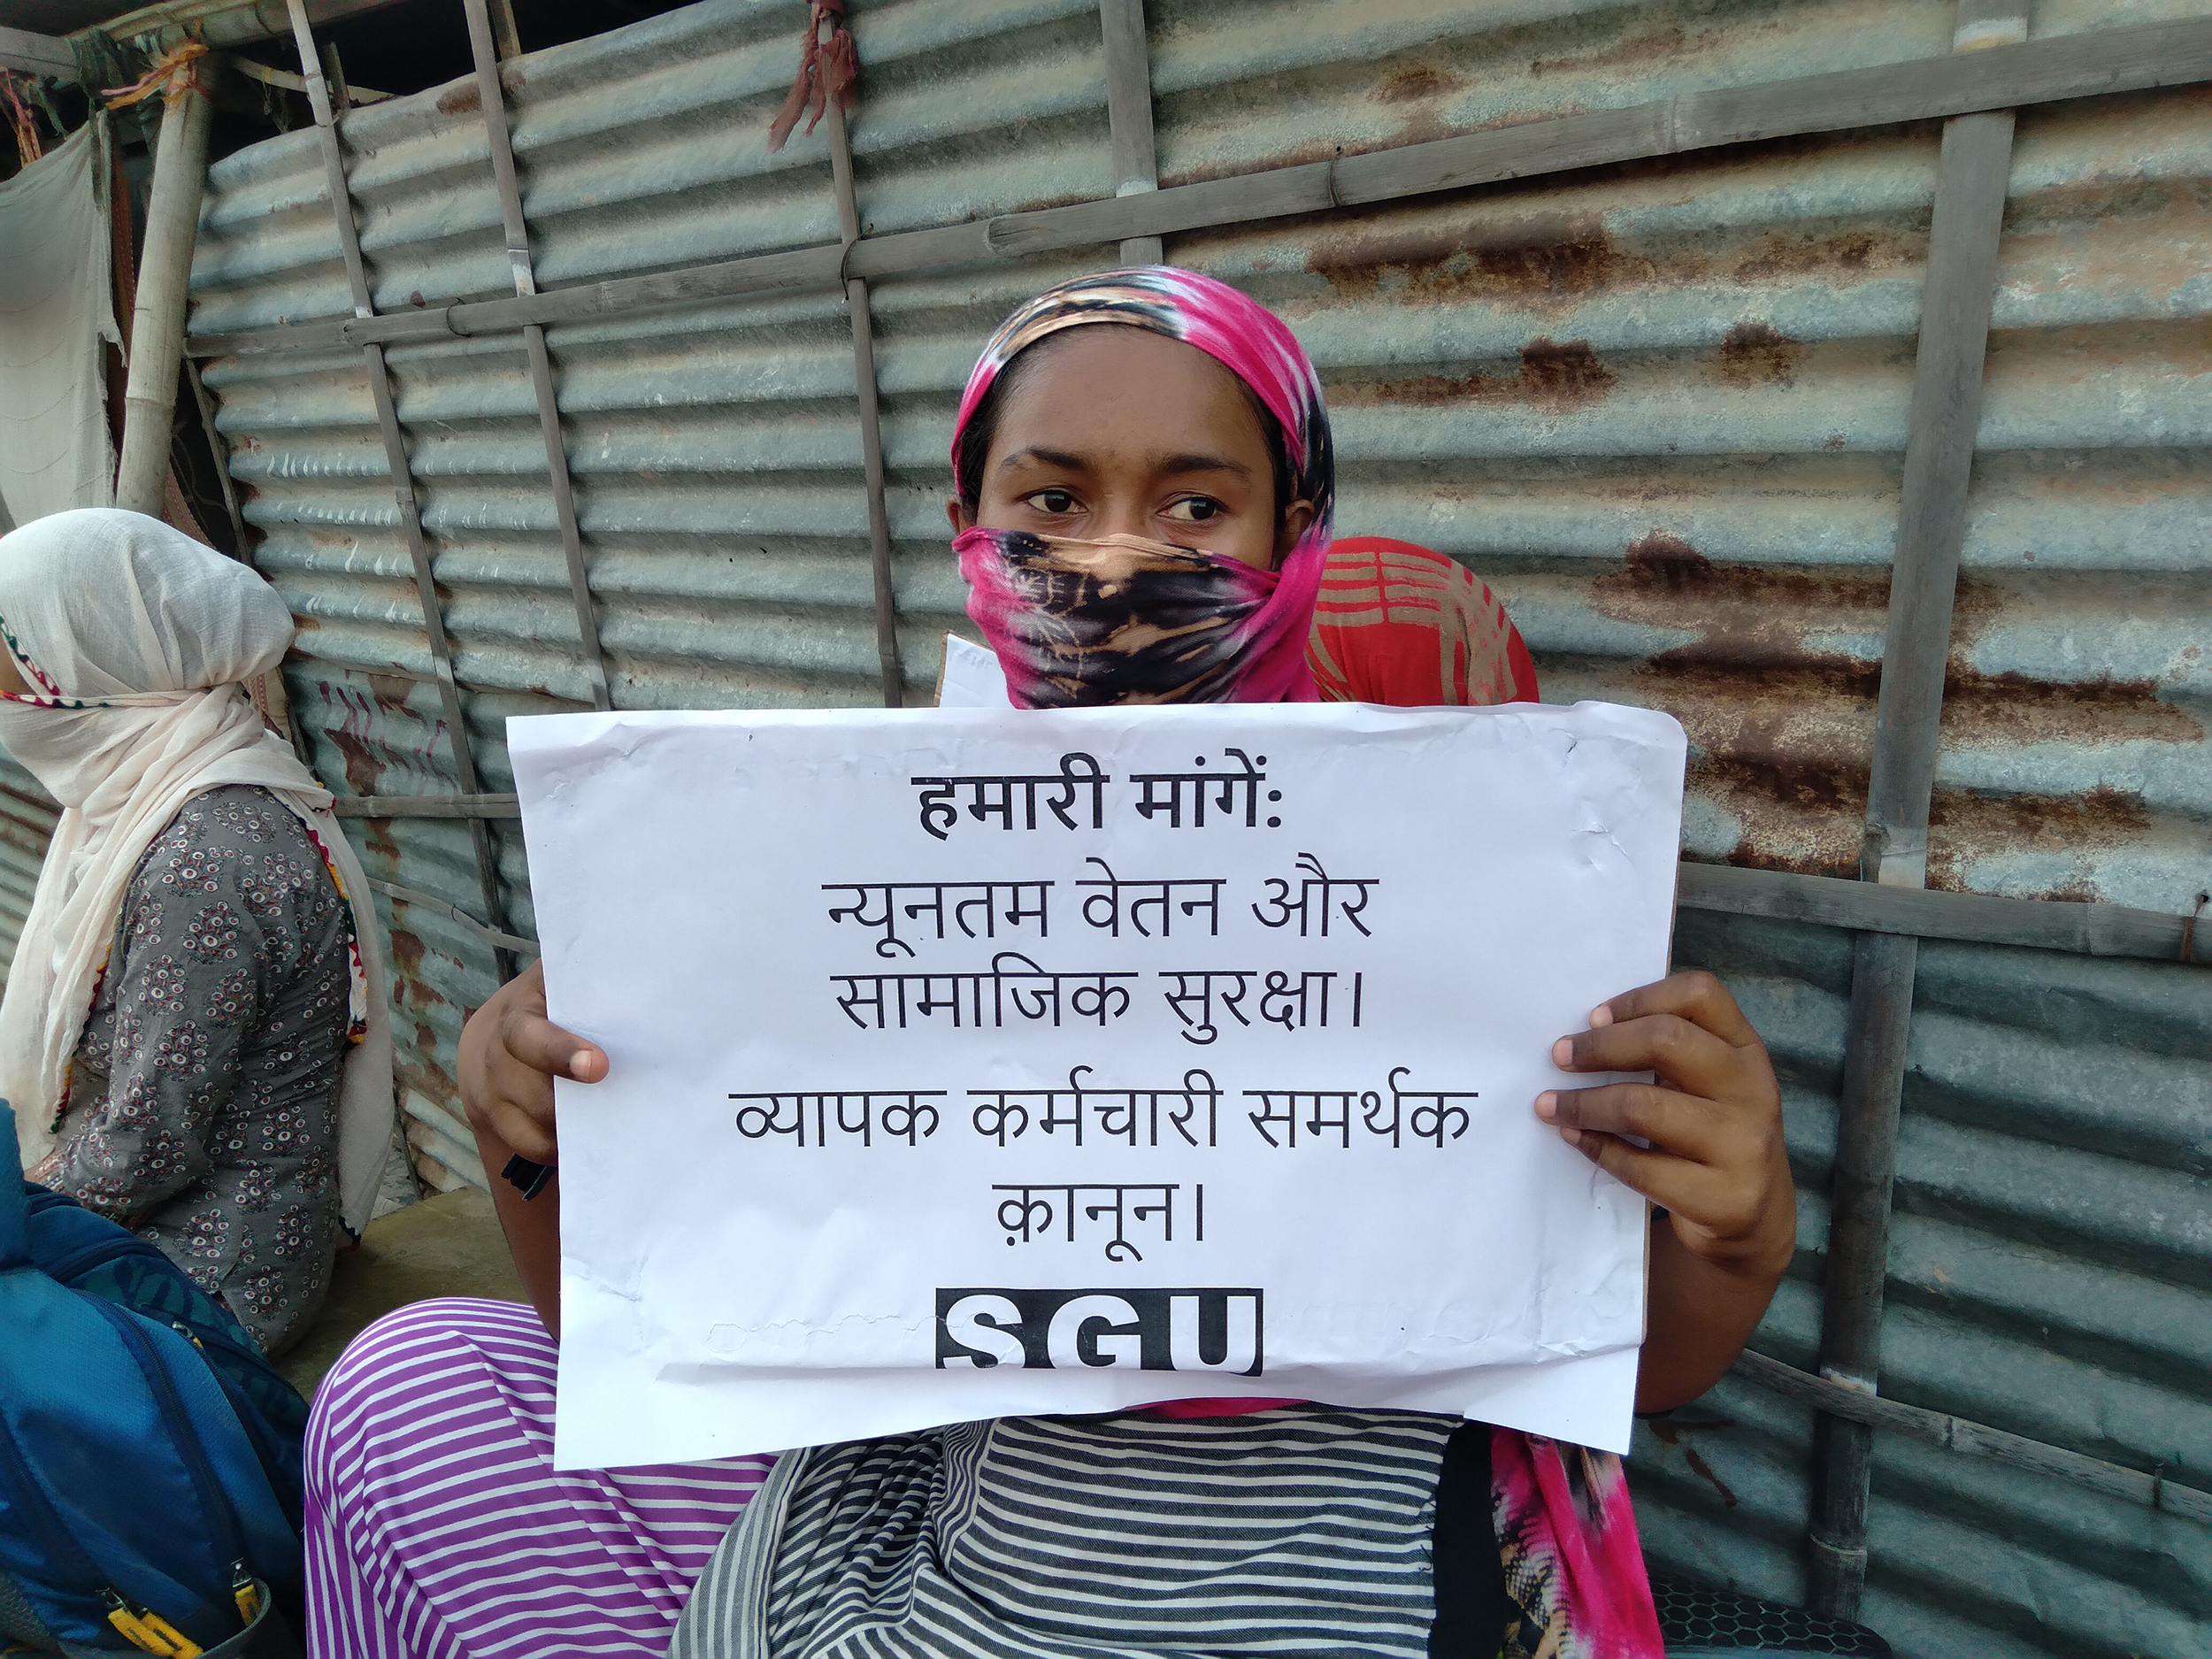 हमारी मांगें:
न्यूनतम वेतन और
सामाजिक सुरक्षा।
व्यापक कर्मचारी समर्थक
क़ानून।
SGU